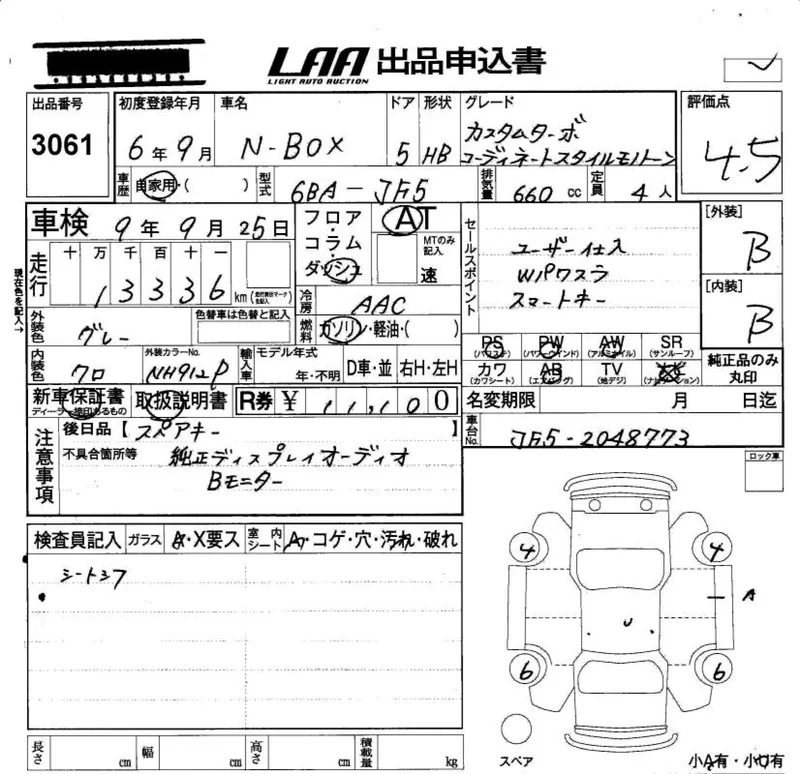 LAA 出品申込書
LIGHT AUTO AUCTION
出品番号 3061
初度登録年月 6年9月
車名 N-BOX
ドア 5
形状 HB
グレード カスタムターボ
コーディネートスタイルモノトーン
評価点 4.5
車歴 自家用・( )
型式 6BA-JF5
排気量 660cc
定員 4人
車検 9年9月25日
フロア
コラム
ダッシュ
AT
MTのみ記入
速
セールスポイント
ユーザー仕入
W/パワスラ
スマートキー
[外装] B
[内装] B
現在色を記入→
走行 十 万 千 百 十 一
1 3 3 3 6 km
冷房 AAC
燃料 ガソリン・軽油・( )
外装色 グレー
色替車は色替と記入
内装色 クロ
外装カラーNo. NH912P
輸入車 モデル年式
年・不明
D車・並
右H・左H
PS (パワステ)
PW (パワーウインド)
AW (アルミホイル)
SR (サンルーフ)
カワ (カワシート)
AB (エアバッグ)
TV (地デジ)
純正品のみ丸印
新車保証書
取扱説明書
R券 ¥ 11,100
名変期限 月 日迄
注意事項
後日品【スペアキー】
不具合箇所等 純正ディスプレイオーディオ
Bモニター
車台No. JF5-2048773
ロック車
検査員記入 ガラス A・X要ス 室内シート A・コゲ・穴・汚れ・破れ
シートシワ
4 4
A
U
6 6
スペア
長さ cm 幅 cm 高さ cm 積載量 kg
小A有・小U有